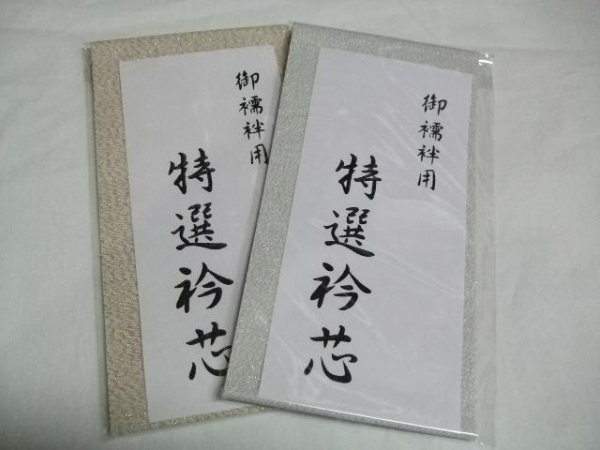 御襦袢用
特選衿芯
御襦袢用
特選衿芯